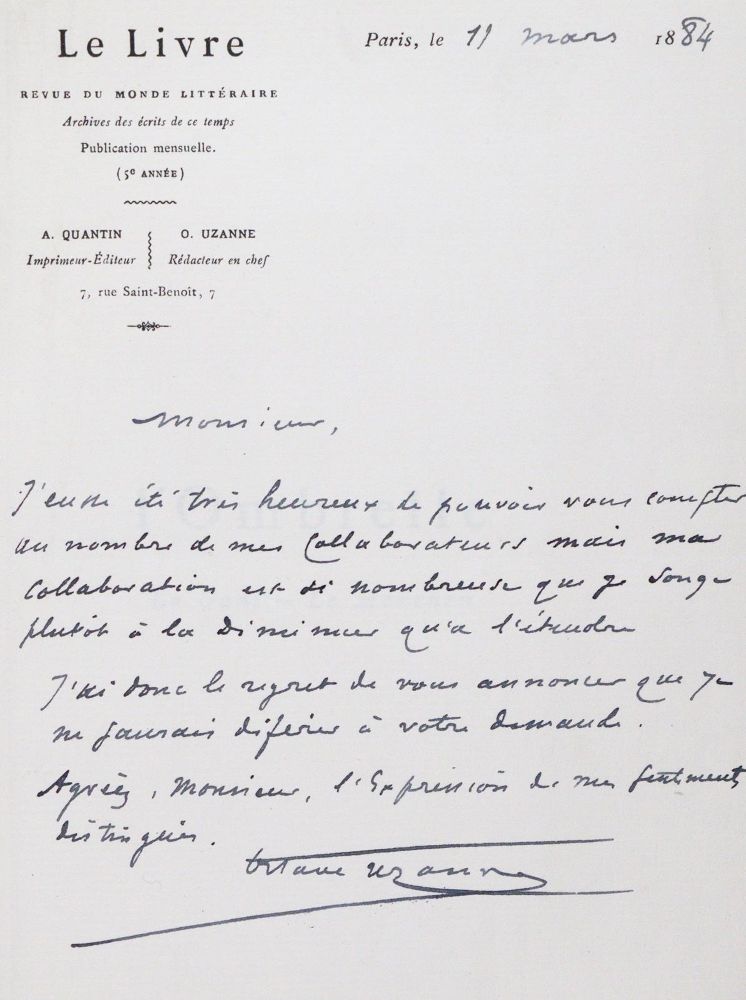 Le Livre
REVUE DU MONDE LITTÉRAIRE
Archives des écrits de ce temps
Publication mensuelle.
(5e ANNÉE)
A. QUANTIN
Imprimeur-Éditeur
O. UZANNE
Rédacteur en chef
7, rue Saint-Benoît, 7
Paris, le 11 mars 1884
Monsieur,
J'eusse été très heureux de pouvoir vous compter
au nombre de mes Collaborateurs mais ma
Collaboration est si nombreuse que je songe
plutôt à la diminuer qu'à l'étendre
J'ai donc le regret de vous annoncer que je
ne saurais diférer à votre demande.
Agréez, Monsieur, l'Expression de mes sentiments
distingués.
Octave Uzanne